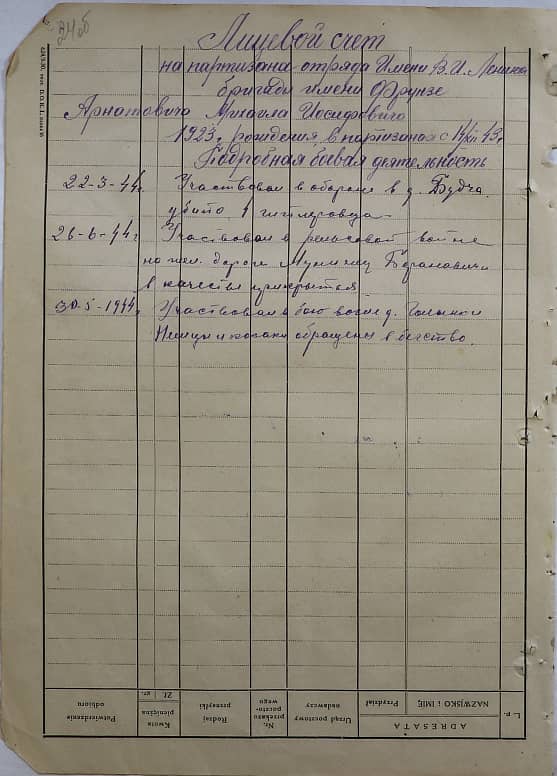 24об
Лицевой счет
на партизана отряда Имени В.И. Ленина
бригады имени Фрунзе
Арнатовича Михаила Иосифовича
1923 г. рождения, в партизанах с
Подробная боевая деятельность
22-3-44г. Участвовал в обороне в д. Будча
убито 1 гитлеровца
26-6-44г. Участвовал в рельсовой войне
на жел. дороге Барановичи
в качестве прикрытия
30-5-1944г. Участвовал в бою возле д.
Немцы и козаки обращены в бегство.
L. p.
ADRESATA
NAZWISKO i IMIĘ
Przydział
Urząd pocztowy
nadawczy
Nr.
przekazu
poczto-
wego
Rodzaj
przesyłki
Kwota
pieniężna
Zł.
gr.
Potwierdzenie
odbioru